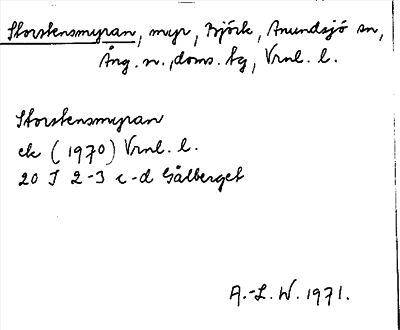 Storstensmyran, myr, Björk, Anundsjö sn,
Ång. n., doms. tg, Vrnl. l.
Storstensmyran
ek (1970) Vrnl. l.
20 I 2-3 c-d Gålberget
A.-L. W. 1971.